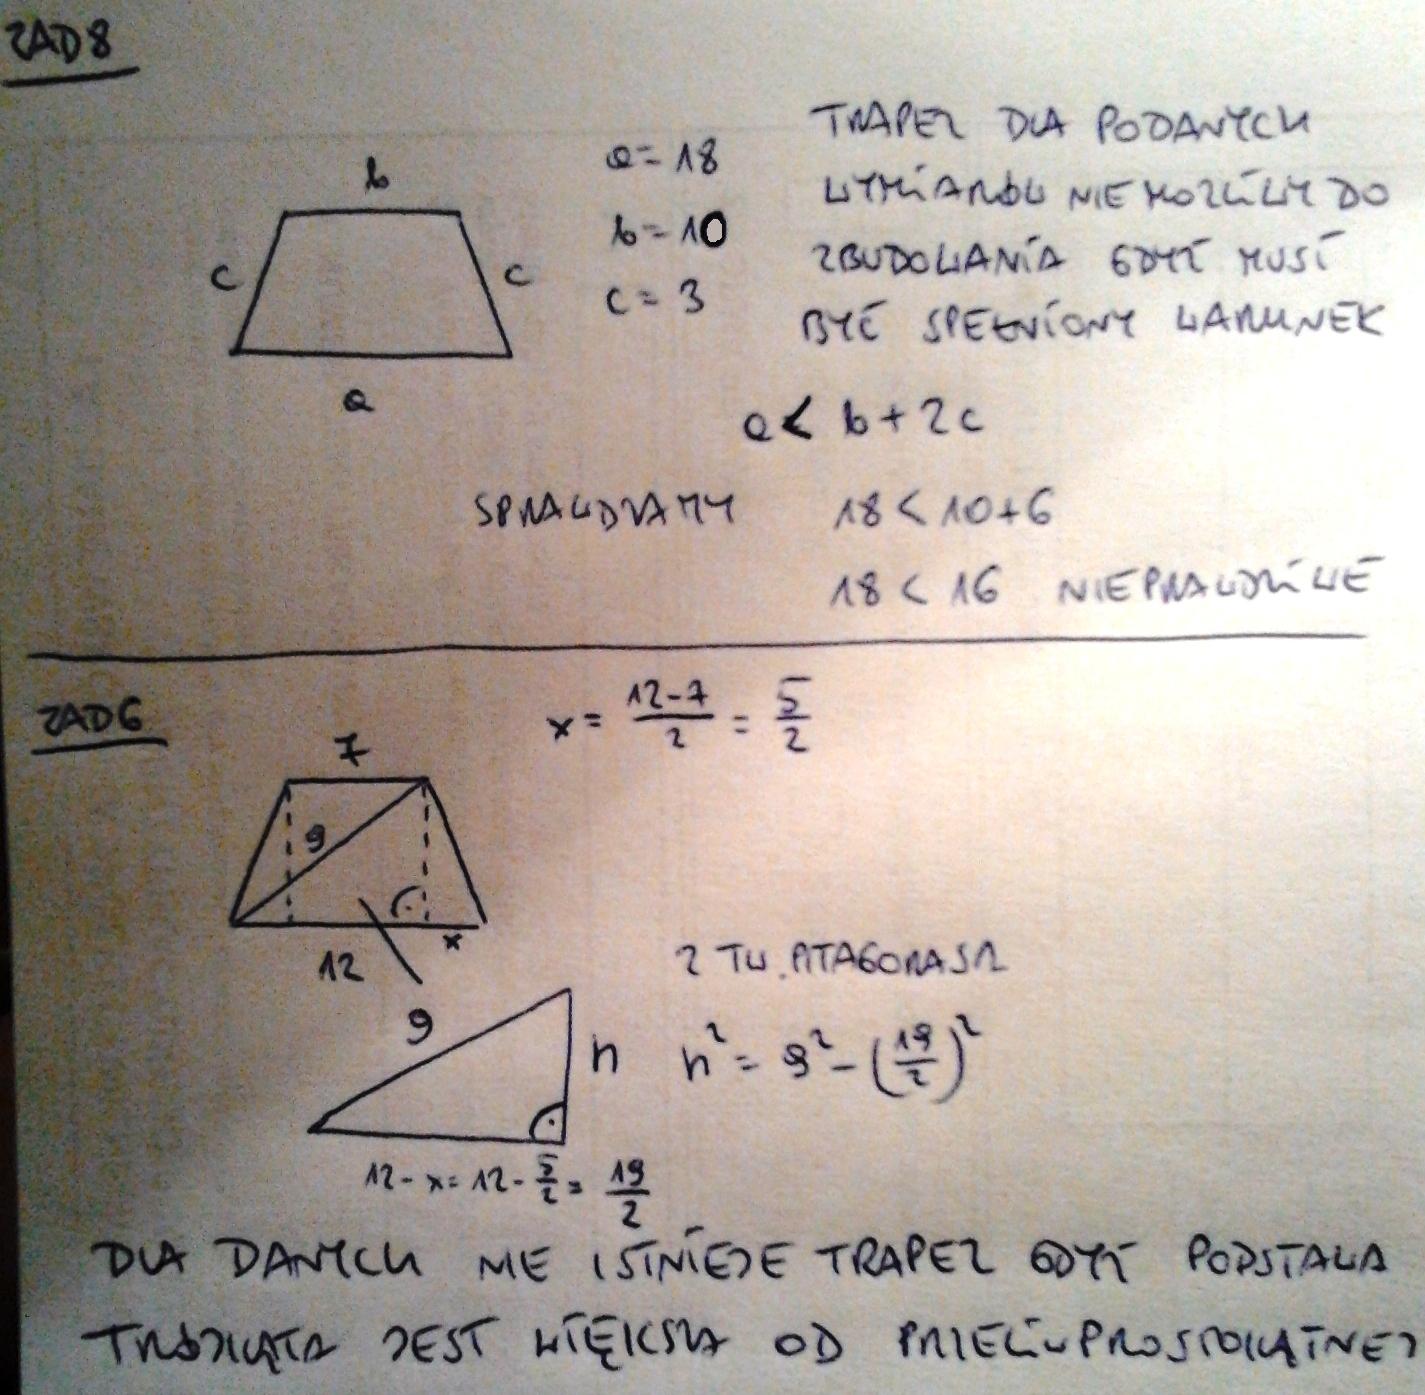 ZAD 8
b
c
c
a
a = 18
b = 10
c = 3
TRAPEZ DLA PODANYCH
WYMIARÓW NIEMOŻLIWY DO
ZBUDOWANIA GDYŻ MUSI
BYĆ SPEŁNIONY WARUNEK
a < b + 2c
SPRAWDZAMY 18 < 10+6
18 < 16 NIEPRAWDZIWE
ZAD 6
x = \frac{12-7}{2} = \frac{5}{2}
7
9
x
12
9
h
12 - x = 12 - \frac{5}{2} = \frac{19}{2}
Z TW. PITAGORASA
h² = 9² - (\frac{19}{2})²
DLA DANYCH NIE ISTNIEJE TRAPEZ GDYŻ PODSTAWA
TRÓJKĄTA JEST WIĘKSZA OD PRZECIWPROSTOKĄTNEJ